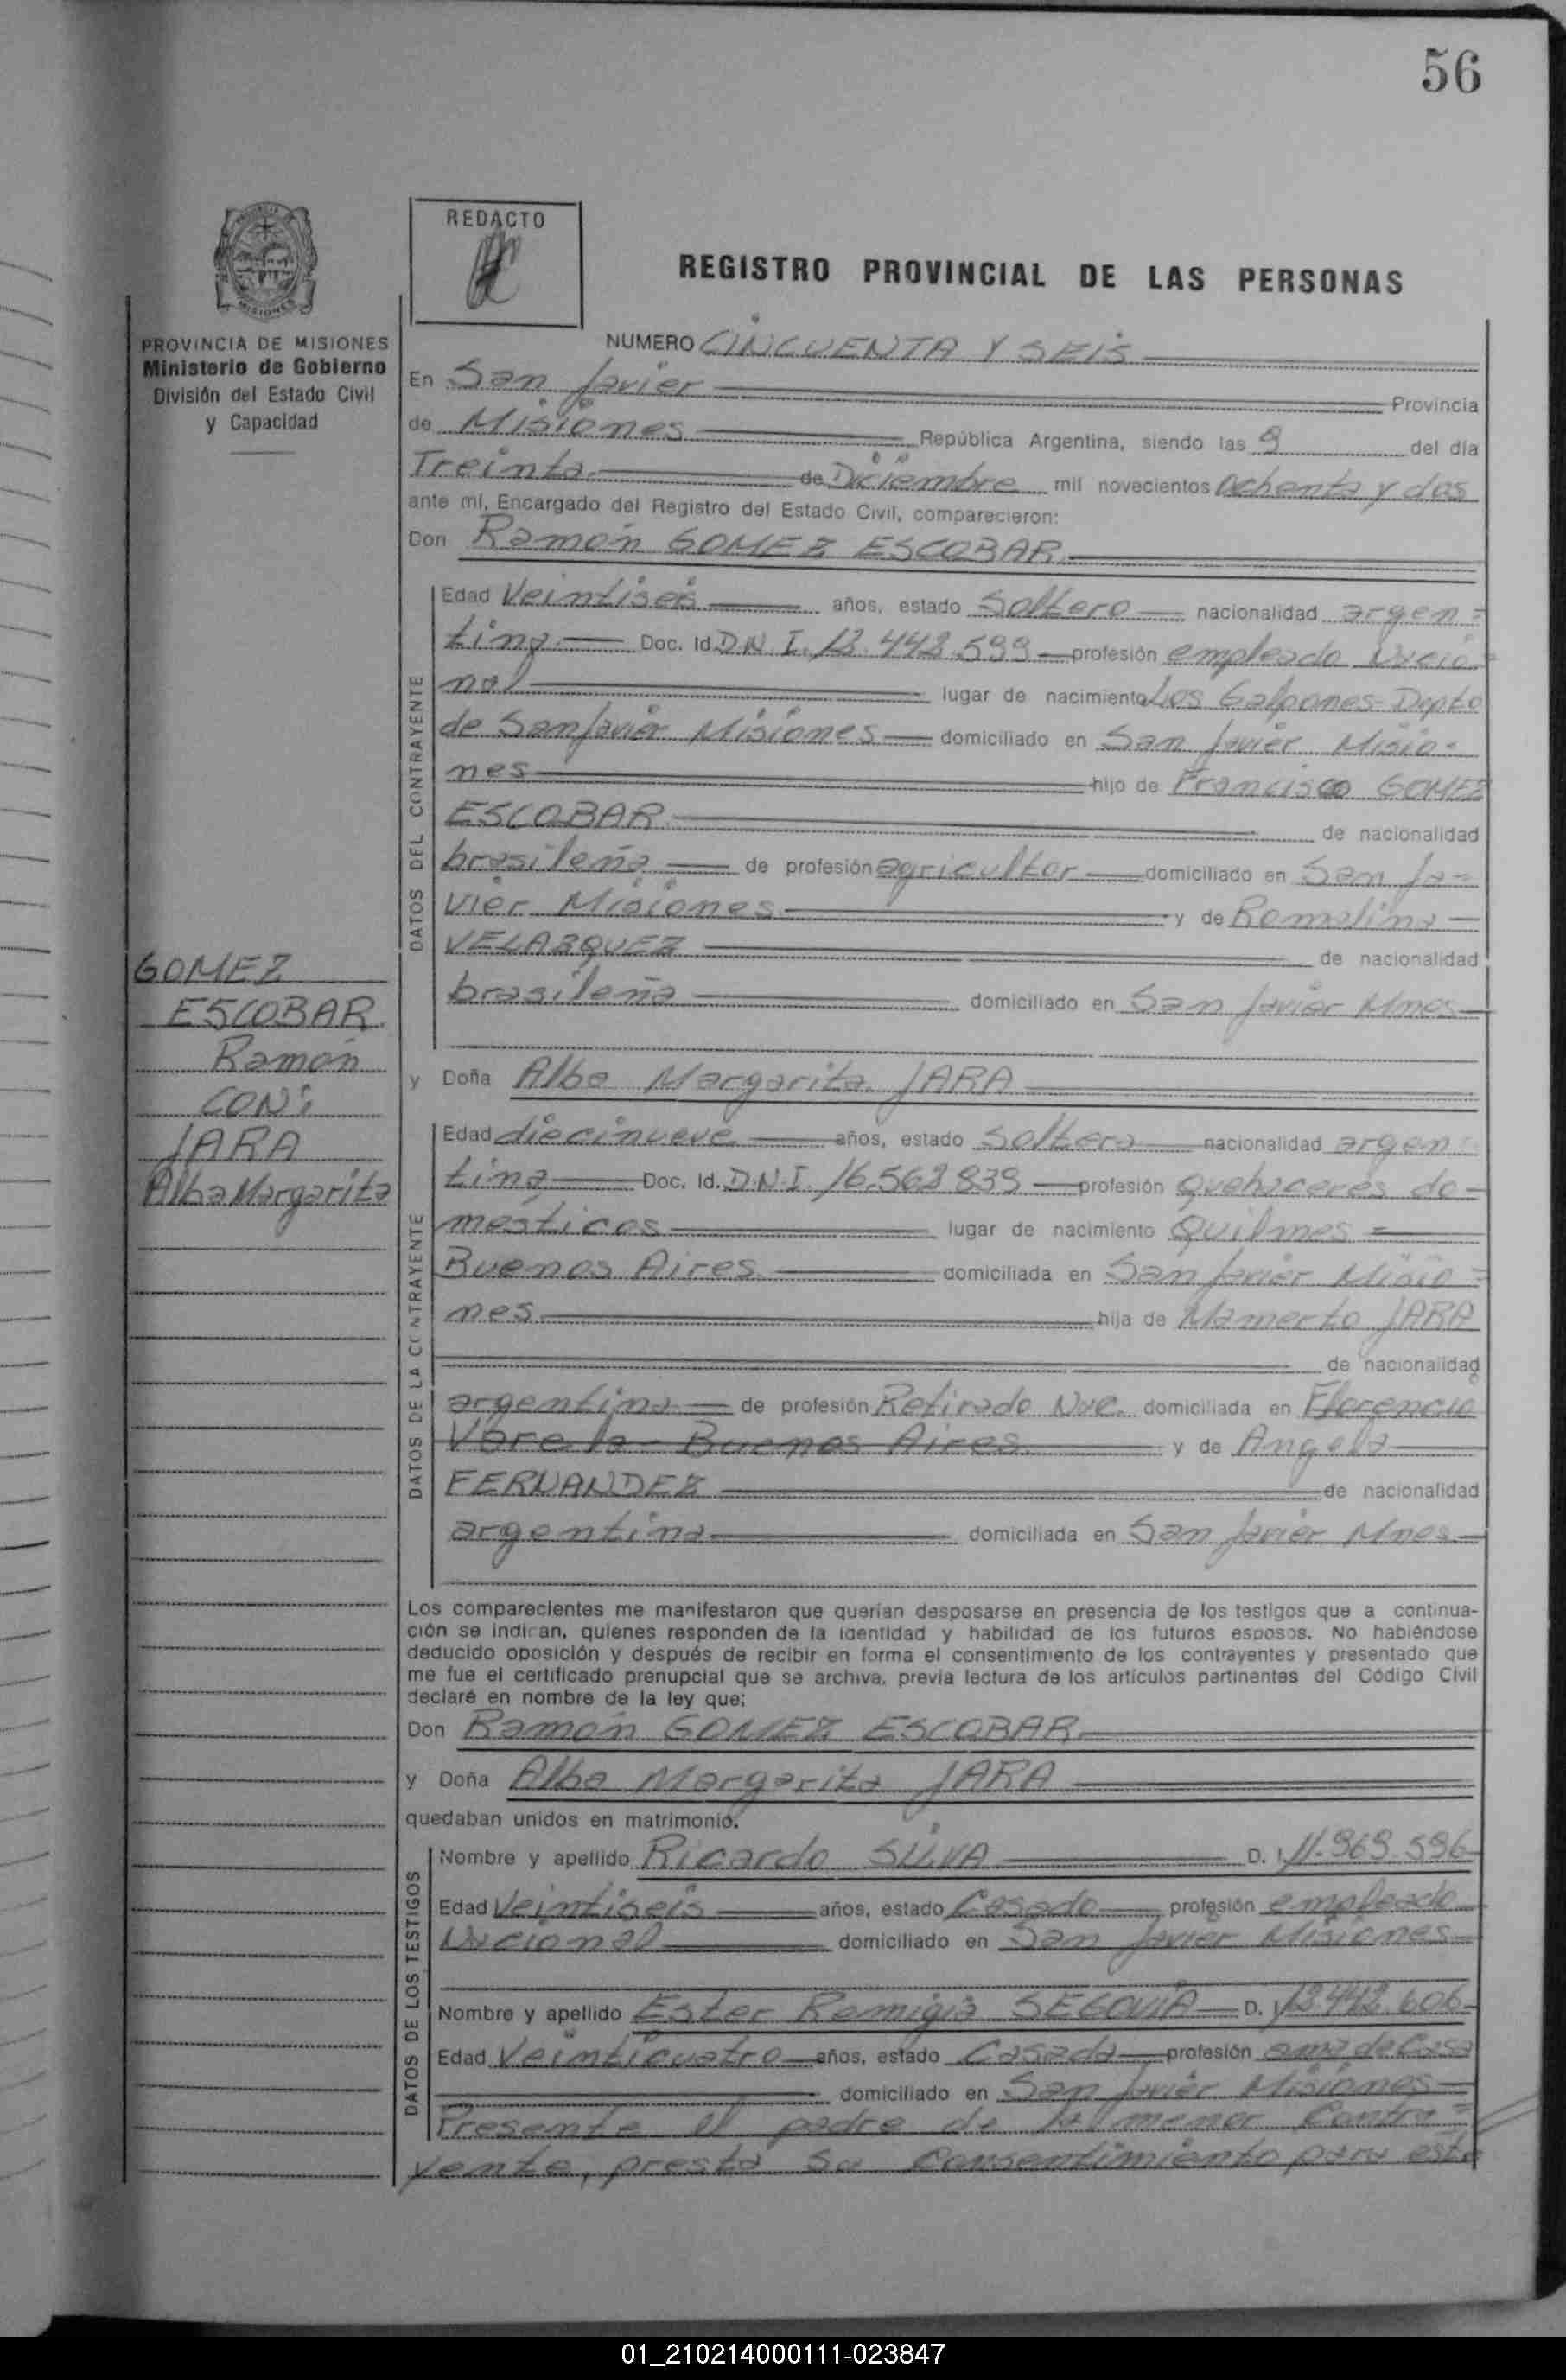 56
REDACTO
REGISTRO PROVINCIAL DE LAS PERSONAS
PROVINCIA DE MISIONES
Ministerio de Gobierno
División del Estado Civil
y Capacidad
GOMEZ
ESCOBAR
Ramón
CON:
JARA
Alba Margarita
NUMERO CINCUENTA Y SEIS
En San Javier Provincia
de Misiones República Argentina, siendo las 9 del día
Treinta de Diciembre mil novecientos ochenta y dos
ante mí, Encargado del Registro del Estado Civil, comparecieron:
Don Ramón GOMEZ ESCOBAR
DATOS DEL CONTRAYENTE
Edad Veintiseis años, estado Soltero nacionalidad argen=
tina Doc. Id. D.N.I. 12.442.599 profesión empleado Nacio=
nal lugar de nacimiento Los Galpones-Depto
de San Javier Misiones domiciliado en San Javier Misio=
nes hijo de Francisco GOMEZ
ESCOBAR de nacionalidad
brasileña de profesión agricultor domiciliado en San Ja=
vier Misiones y de Romalina
VELAZQUEZ de nacionalidad
brasileña domiciliado en San Javier Mnes
y Doña Alba Margarita JARA
DATOS DE LA CONTRAYENTE
Edad diecinueve años, estado Soltera nacionalidad argen=
tina Doc. Id. D.N.I. 16.562.839 profesión Quehaceres do=
mésticos lugar de nacimiento Quilmes =
Buenos Aires domiciliada en San Javier Misio=
nes hija de Mamerto JARA
de nacionalidad
argentina de profesión Retirado Nac. domiciliada en Florencio
Varela Buenos Aires y de Angela
FERNANDEZ de nacionalidad
argentina domiciliada en San Javier Mnes
Los comparecientes me manifestaron que querían desposarse en presencia de los testigos que a continua-
ción se indican, quienes responden de la identidad y habilidad de los futuros esposos. No habiéndose
deducido oposición y después de recibir en forma el consentimiento de los contrayentes y presentado que
me fue el certificado prenupcial que se archiva, previa lectura de los artículos pertinentes del Código Civil
declaré en nombre de la ley que:
Don Ramón GOMEZ ESCOBAR
y Doña Alba Margarita JARA
quedaban unidos en matrimonio.
DATOS DE LOS TESTIGOS
Nombre y apellido Ricardo SILVA D. I. 11.969.596
Edad Veintiseis años, estado Casado profesión empleado
Nacional domiciliado en San Javier Misiones
Nombre y apellido Ester Remigia SEGOVIA D. I. 12.442.606
Edad Veinticuatro años, estado Casada profesión ama de Casa
domiciliado en San Javier Misiones
Presente el padre de la menor Contra=
yente, presta su Consentimiento para este
01_210214000111-023847